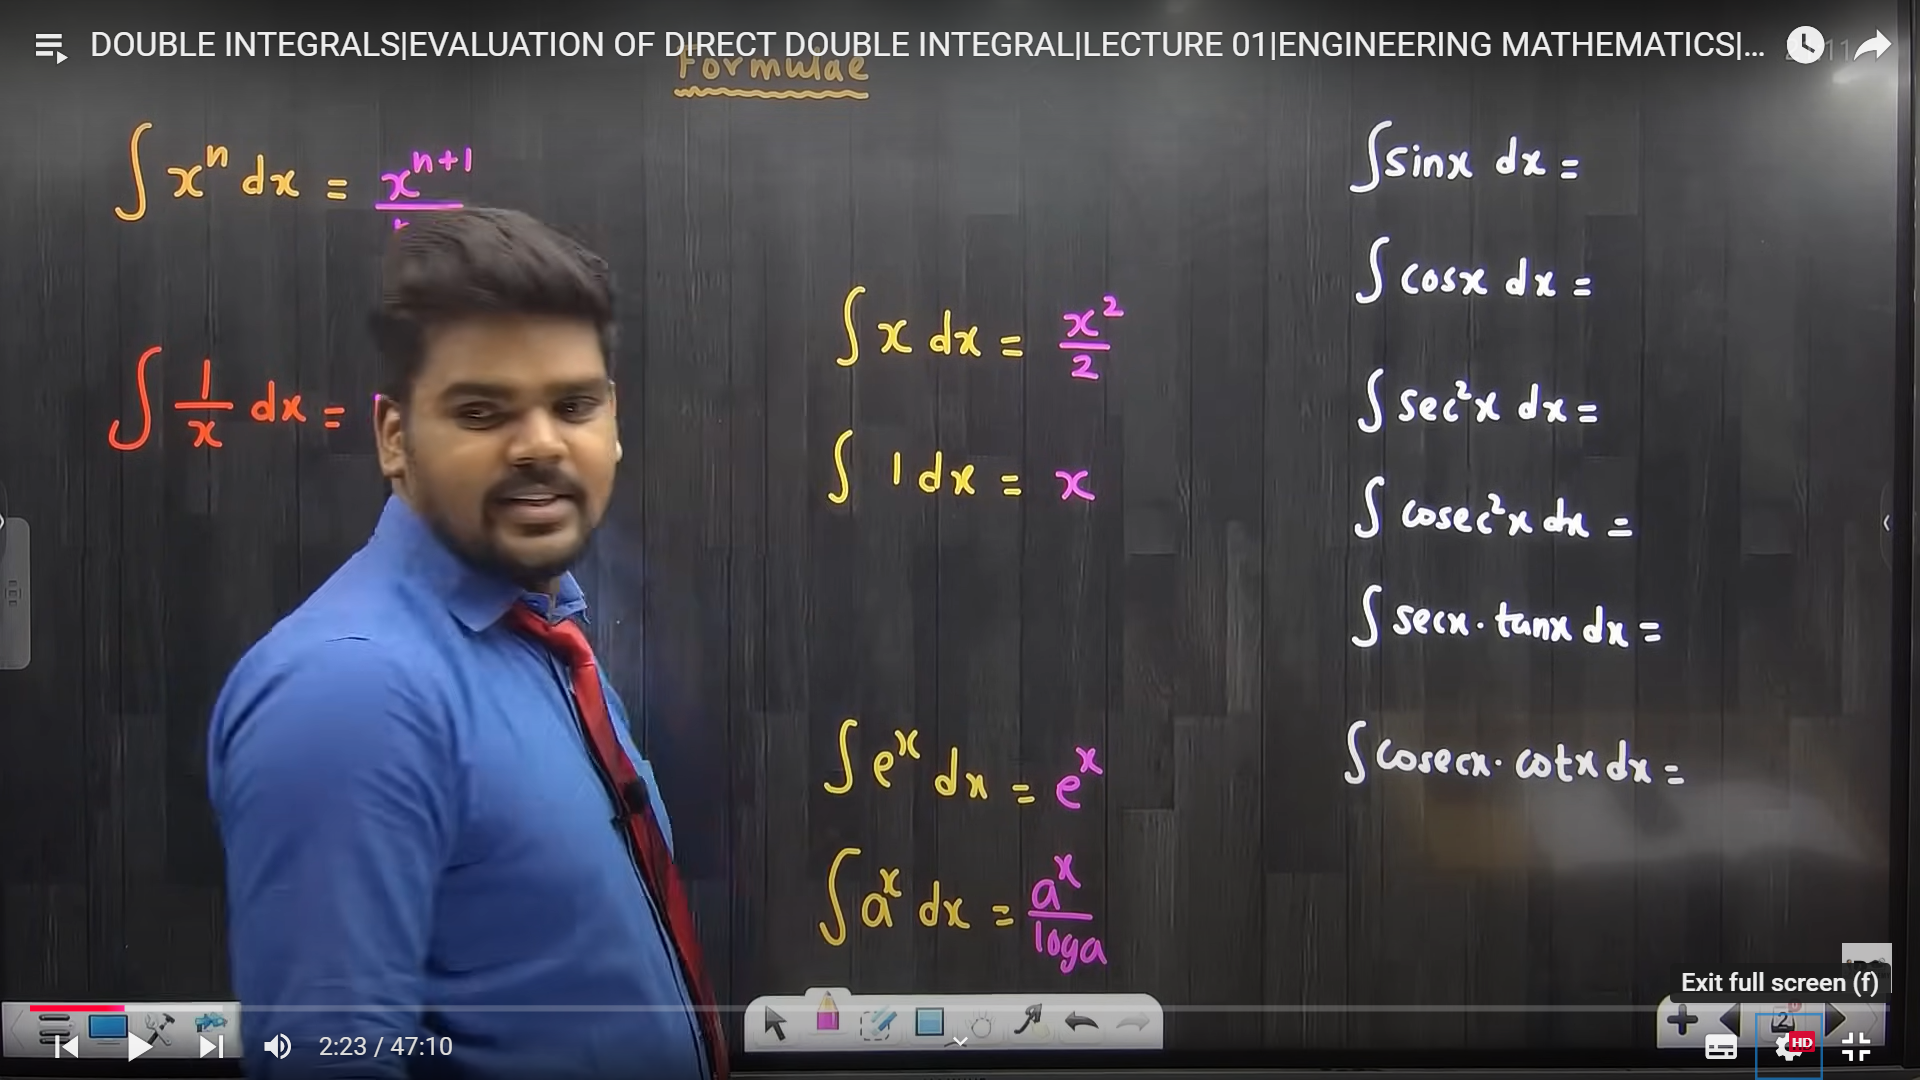 DOUBLE INTEGRALS|EVALUATION OF DIRECT DOUBLE INTEGRAL|LECTURE 01|ENGINEERING MATHEMATICS|...
Formulae
∫ xⁿ dx = xⁿ⁺¹/
∫ 1/x dx =
∫ x dx = x²/2
∫ 1 dx = x
∫ eˣ dx = eˣ
∫ aˣ dx = aˣ/loga
∫ sinx dx =
∫ cosx dx =
∫ sec²x dx =
∫ cosec²x dx =
∫ secx · tanx dx =
∫ cosecx · cotx dx =
Exit full screen (f)
2
2:23 / 47:10
HD